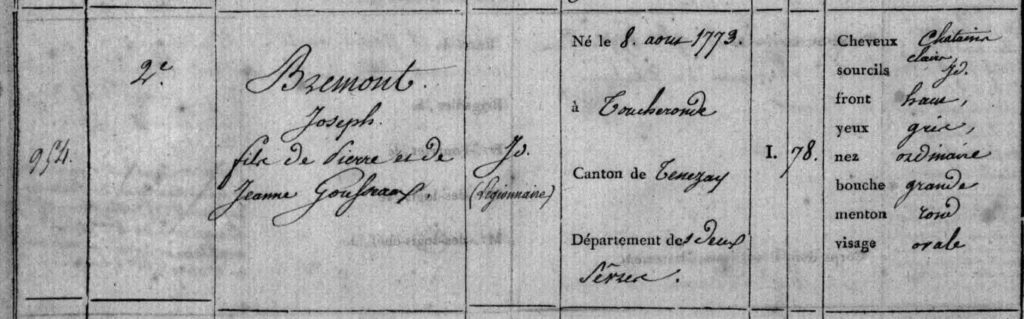 954.
2e.
Bremont.
Joseph.
fils de Pierre et de
Jeanne Gousseaux
Jd.
(Légionnaire)
Né le 8. aout 1773.
à Toucheronde
Canton de Tenezay
Département des deux
Sêvres.
I. 78.
Cheveux Chatains
clairs
sourcils Jd.
front haut,
yeux gris,
nez ordinaire
bouche grande
menton rond
visage ovale